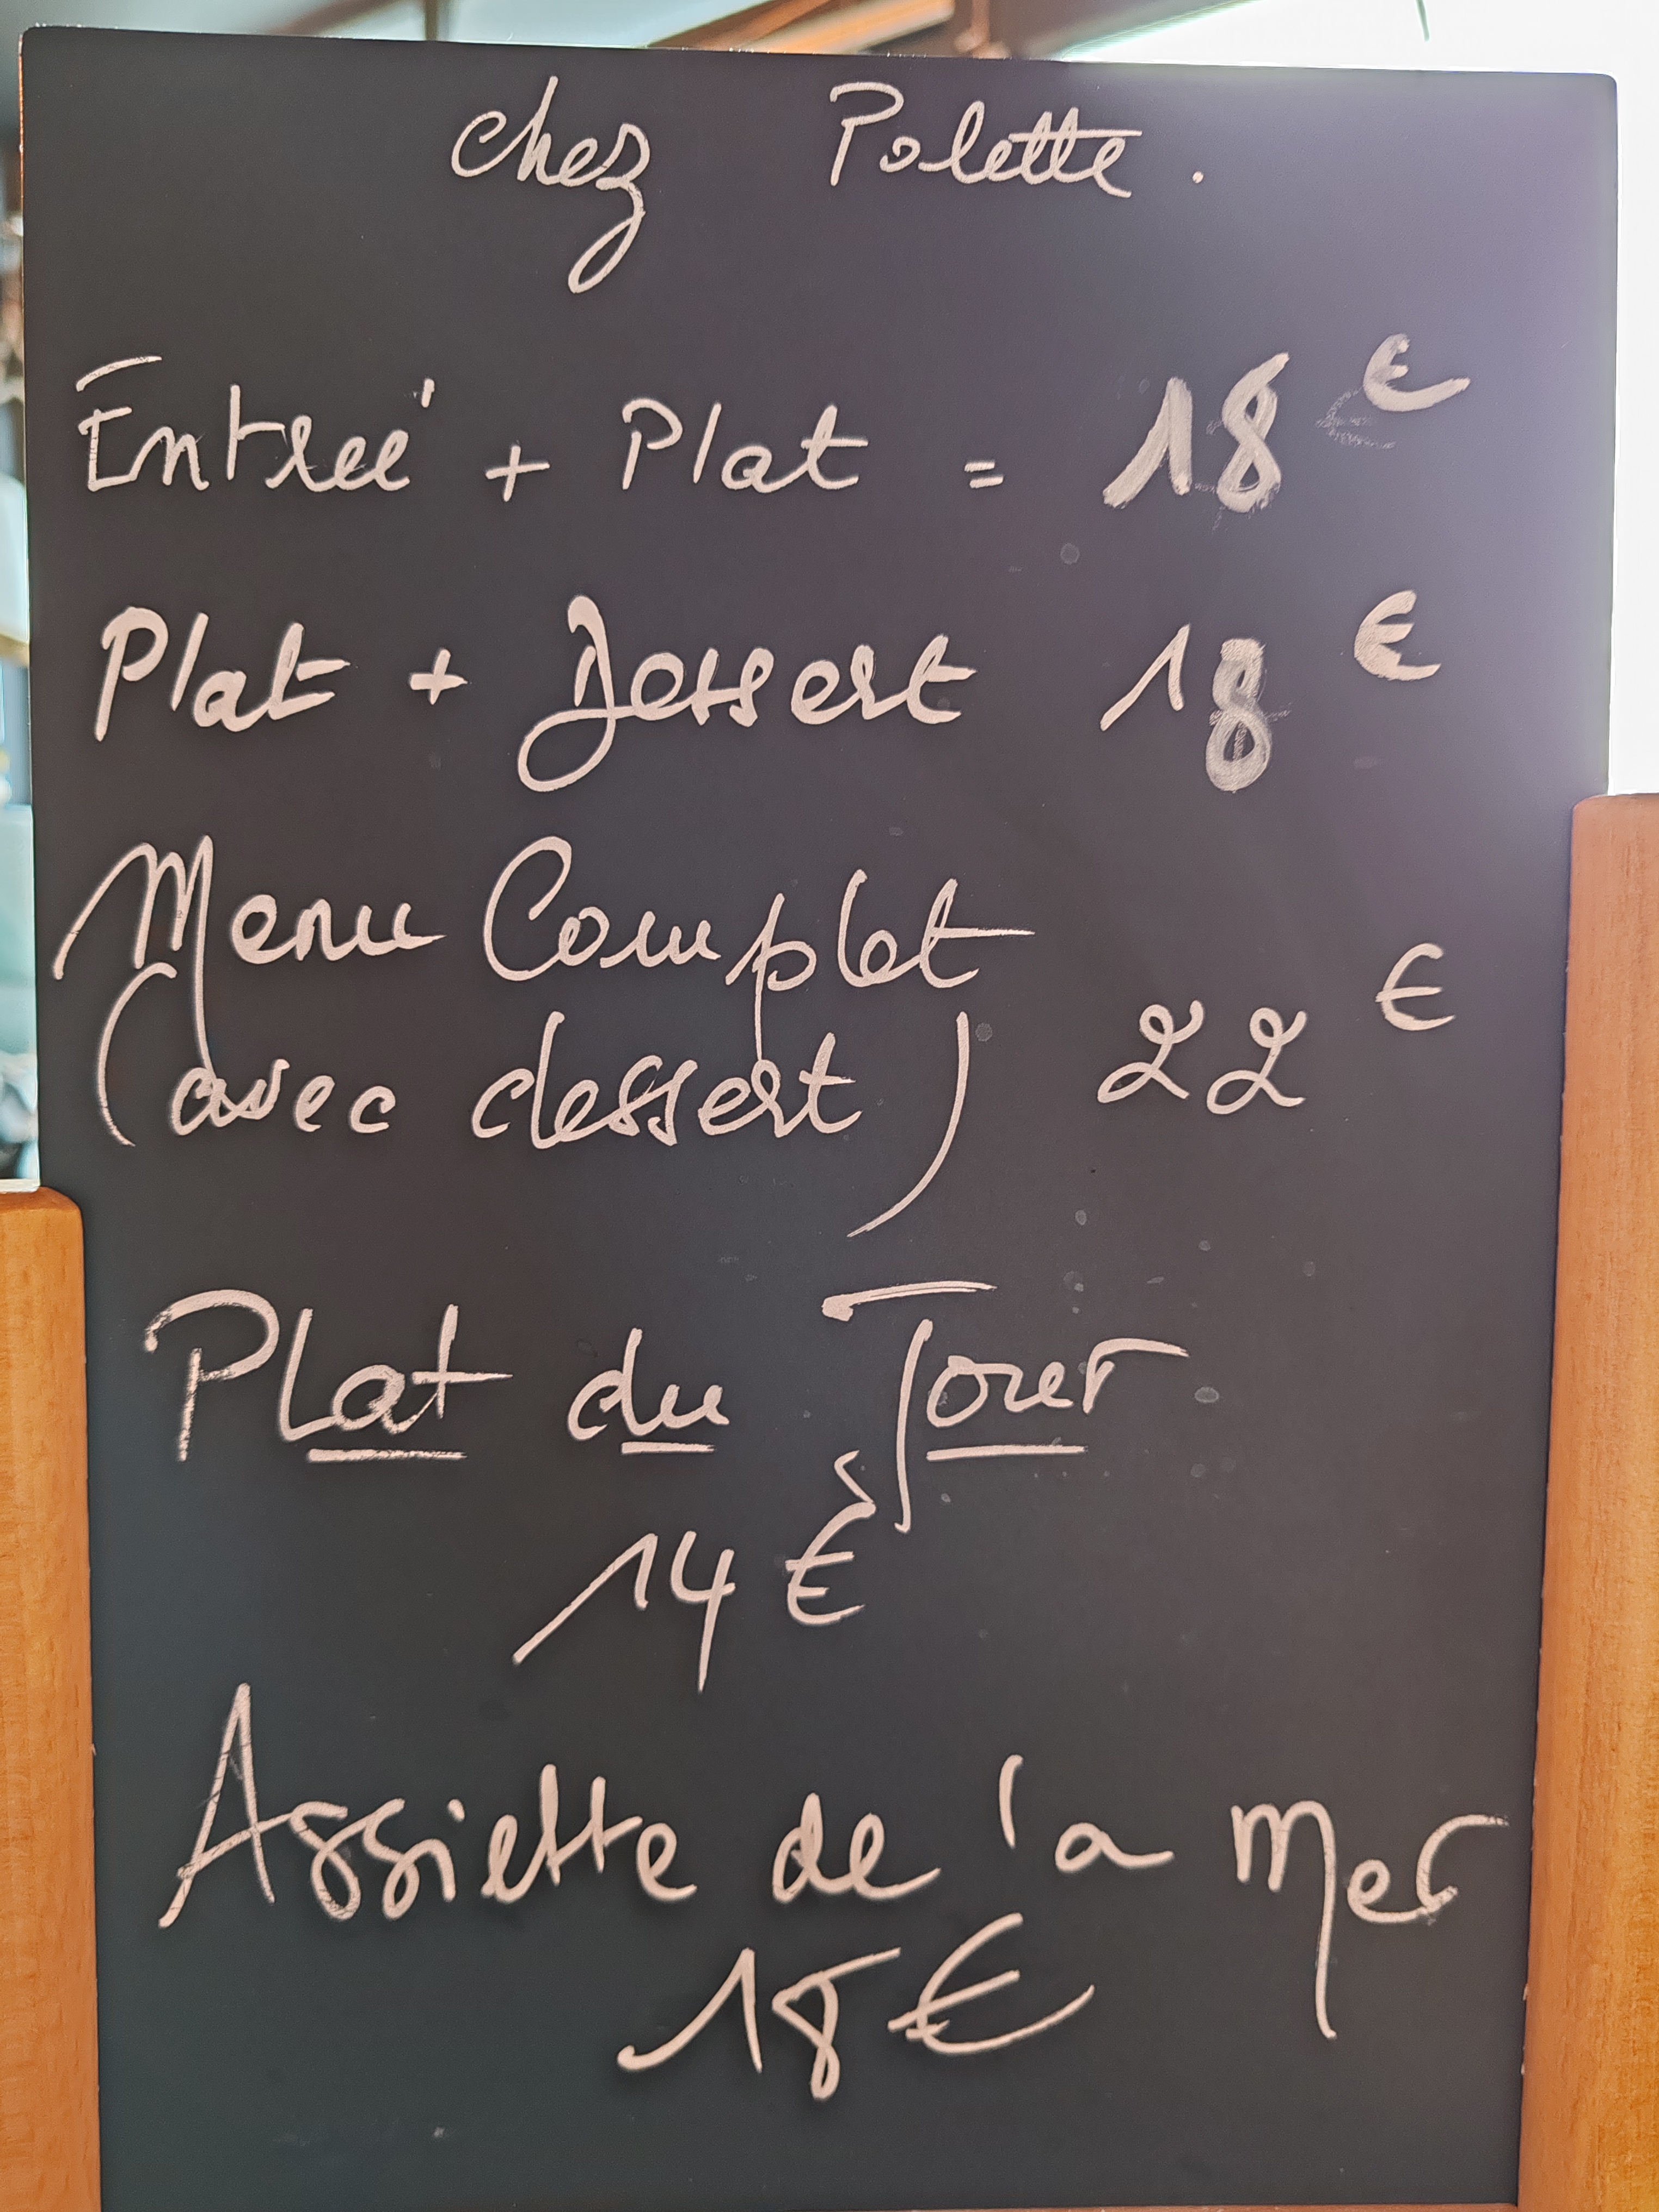 chez Polette.
Entrée + Plat = 18 €
Plat + Dessert 18 €
Menu Complet
(avec dessert) 22 €
Plat du Jour
14 €
Assiette de la Mer
18 €